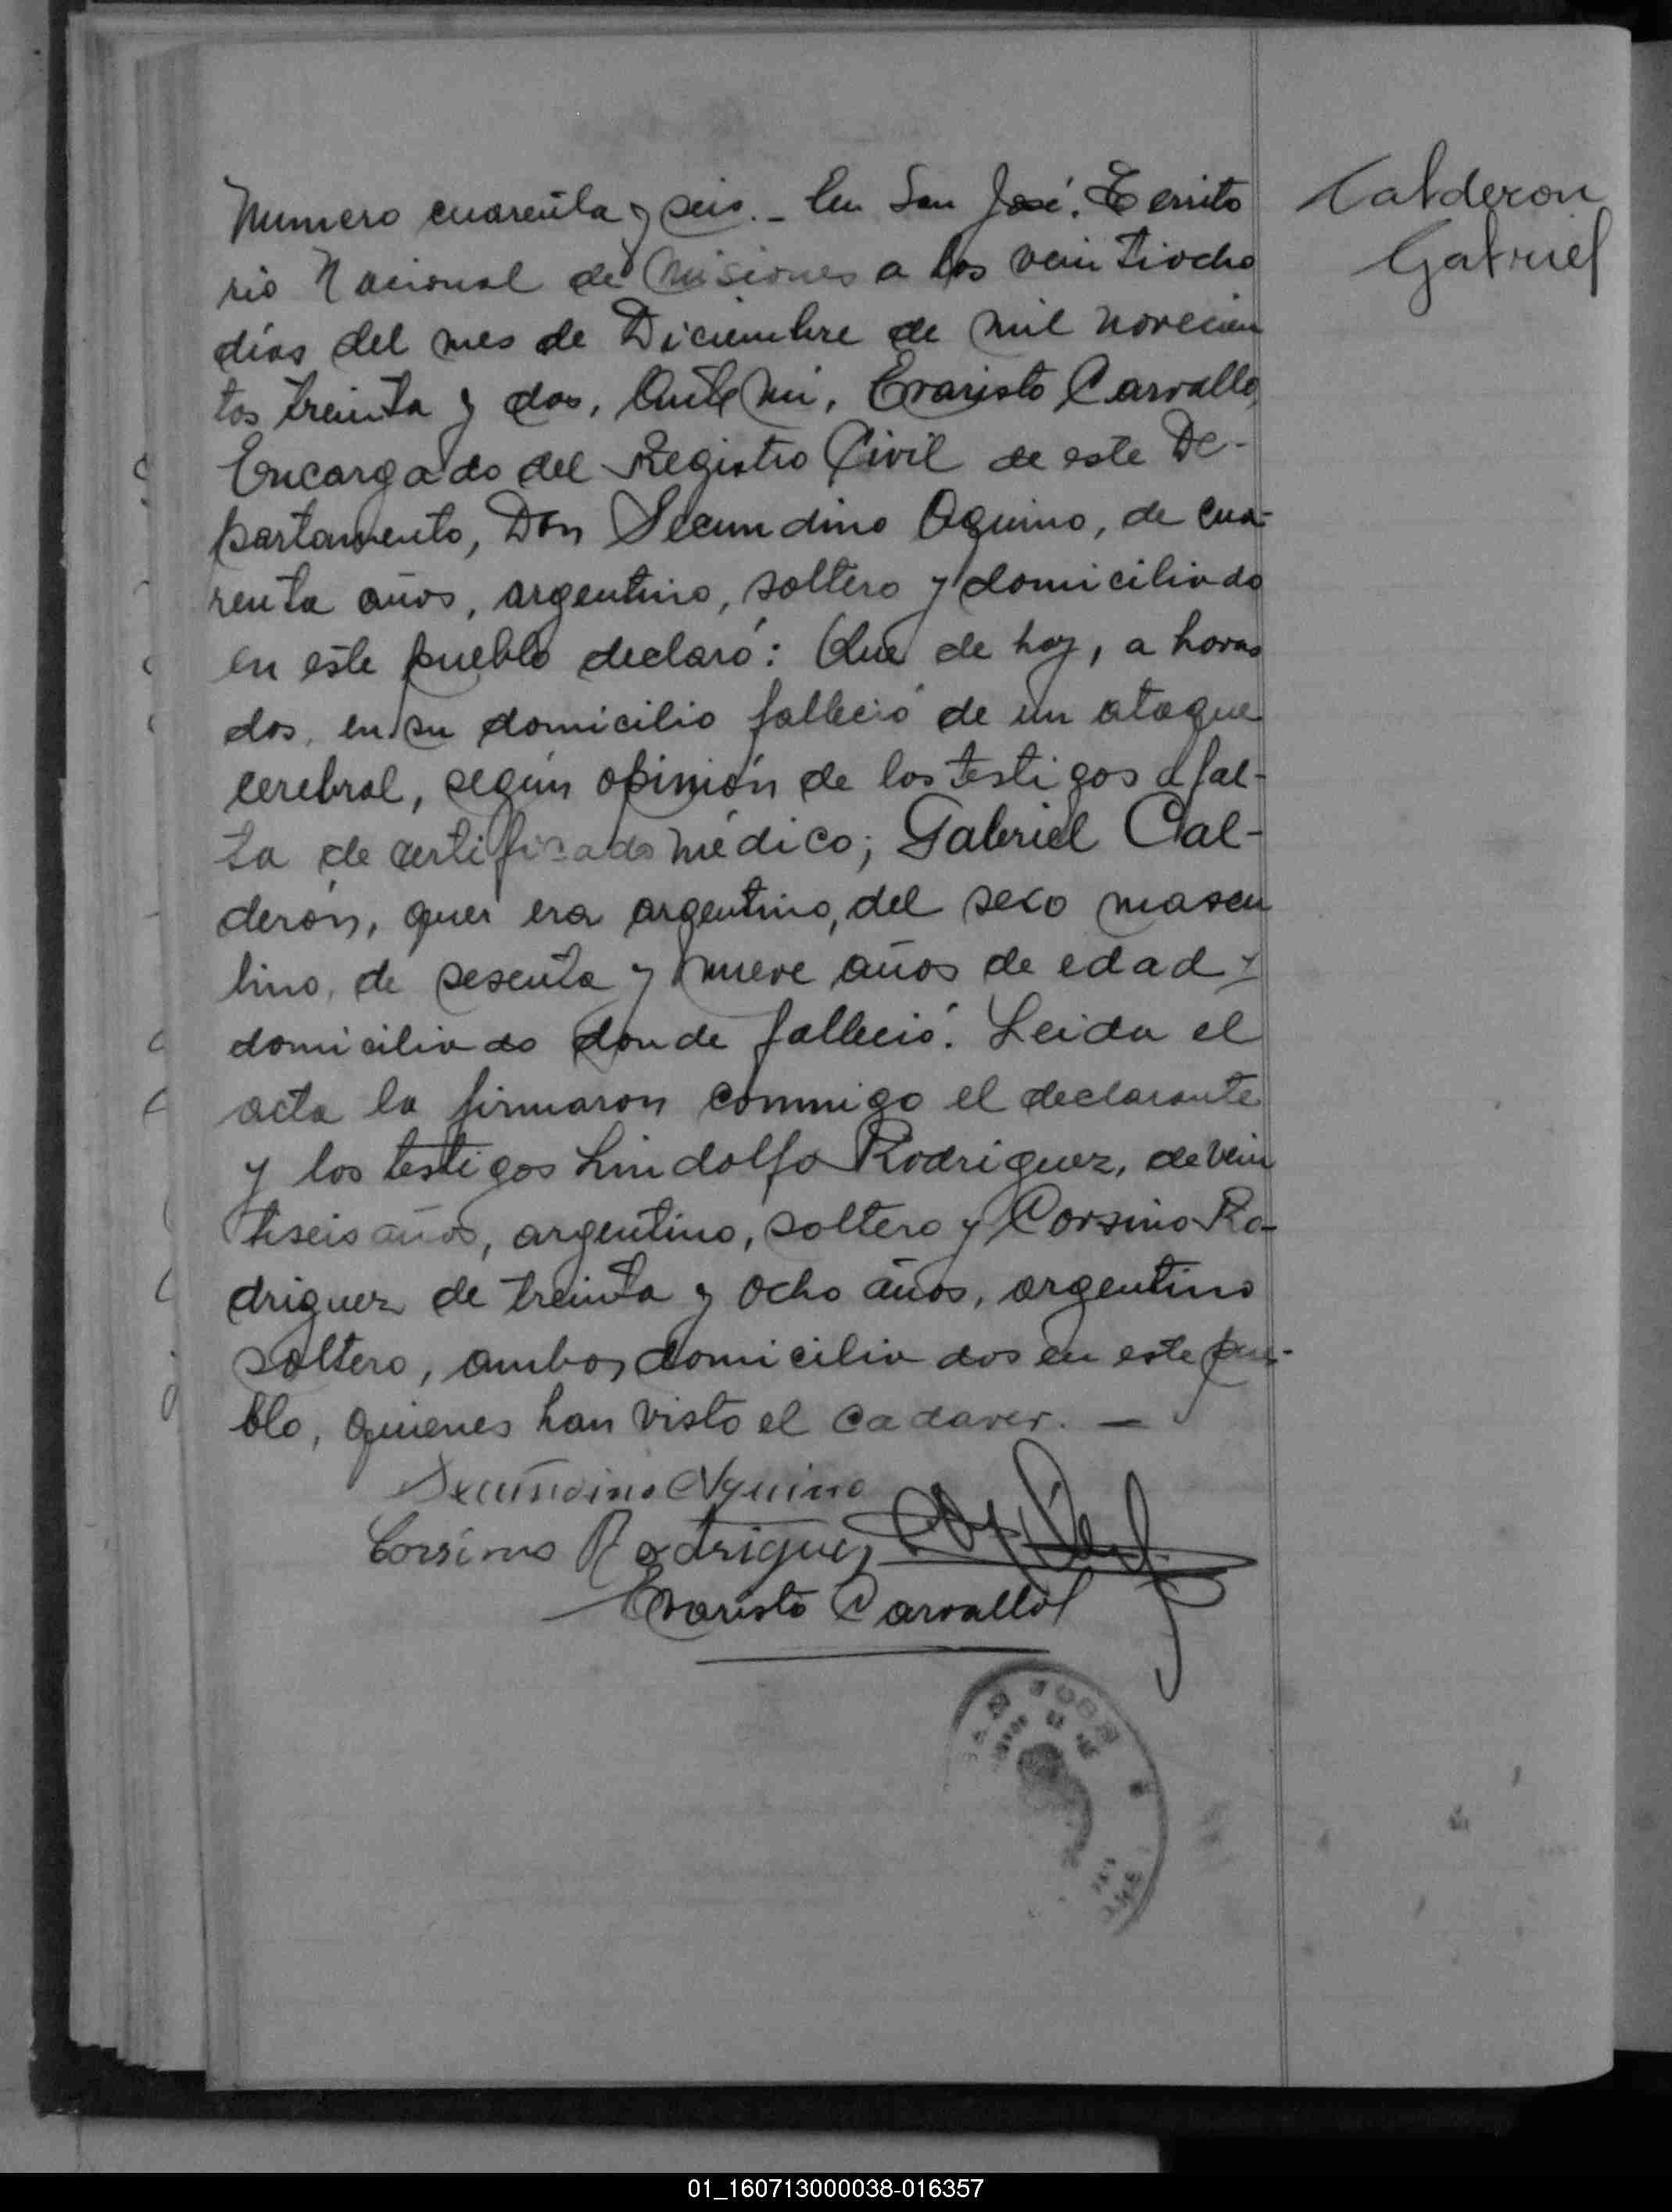 Numero cuarenta y seis.- En San José, Territo
rio Nacional de Misiones a los veintiocho
días del mes de Diciembre de mil novecien
tos treinta y dos, Ante mi, Evaristo Carvallo,
Encargado del Registro Civil de este De-
partamento, Don Secundino Aquino, de cua-
renta años, argentino, soltero y domiciliado
en este pueblo declaró: Que de hoy, a horas
dos, en su domicilio falleció de un ataque
cerebral, según opinión de los testigos a fal-
ta de certificado médico; Gabriel Cal-
derón, quer era argentino, del sexo mascu
lino, de sesenta y nueve años de edad y
domiciliado donde falleció. Leida el
acta la firmaron conmigo el declarante
y los testigos Lindolfo Rodriguez, de vein
tiseis años, argentino, soltero y Corsino Ro-
driguez de treinta y ocho años, argentino
soltero, ambos domiciliados en este pue-
blo, quienes han visto el cadaver. —
Secundino Aquino
Corsino Rodriguez
Evaristo Carvallo
Calderon
Gabriel
01_160713000038-016357